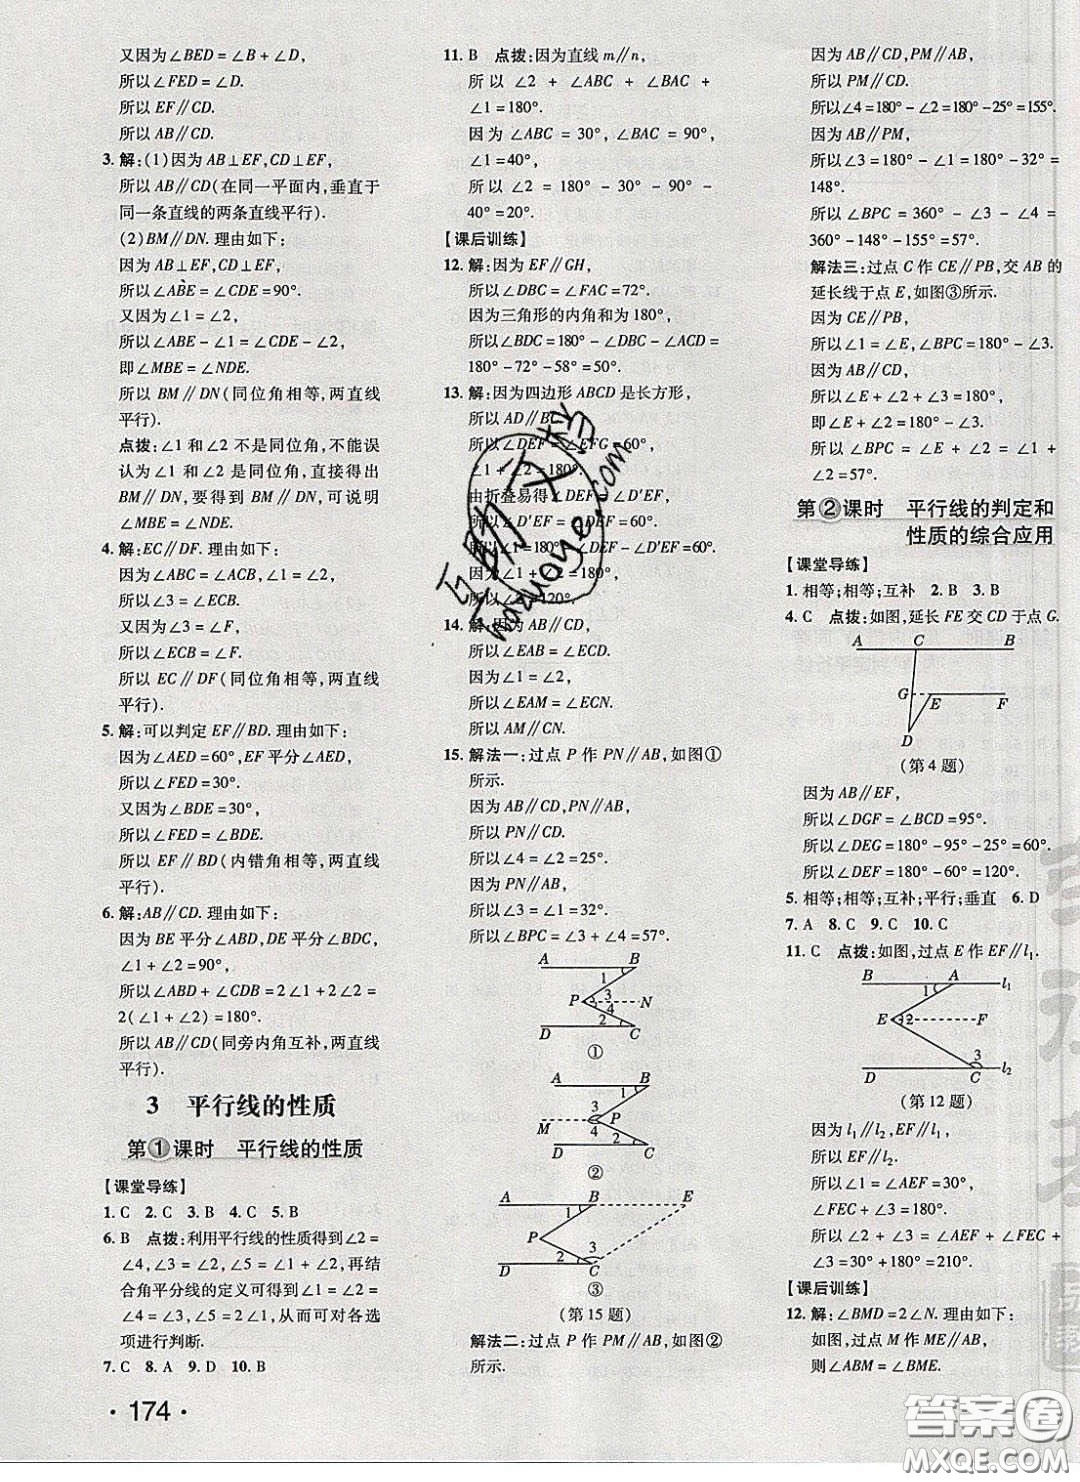 又因为∠BED=∠B+∠D,
所以∠FED=∠D.
所以EF∥CD.
所以AB∥CD.
3. 解:(1)因为AB⊥EF,CD⊥EF,
所以AB∥CD(在同一平面内,垂直于
同一条直线的两条直线平行).
(2)BM∥DN.理由如下:
因为AB⊥EF,CD⊥EF,
所以∠ABE=∠CDE=90°.
又因为∠1=∠2,
所以∠ABE-∠1=∠CDE-∠2,
即∠MBE=∠NDE.
所以BM∥DN(同位角相等,两直线
平行).
点拨:∠1和∠2不是同位角,不能误
认为∠1和∠2是同位角,直接得出
BM∥DN,要得到BM∥DN,应说明
∠MBE=∠NDE.
4. 解:EC∥DF.理由如下:
因为∠ABC=∠ACB,∠1=∠2,
所以∠3=∠ECB.
又因为∠3=∠F,
所以∠ECB=∠F.
所以EC∥DF(同位角相等,两直线
平行).
5. 解:可以判定EF∥BD.理由如下:
因为∠AED=60°,EF平分∠AED,
所以∠FED=30°.
又因为∠BDE=30°,
所以∠FED=∠BDE.
所以EF∥BD(内错角相等,两直线
平行).
6. 解:AB∥CD.理由如下:
因为BE平分∠ABD,DE平分∠BDC,
∠1+∠2=90°,
所以∠ABD+∠CDB=2∠1+2∠2=
2(∠1+∠2)=180°.
所以AB∥CD(同旁内角互补,两直线
平行).
3 平行线的性质
第①课时 平行线的性质
【课堂导练】
1. C 2. C 3. B 4. C 5. B
6. B 点拨:利用平行线的性质得到∠2=
∠4,∠3=∠2,∠5=∠1+∠2,再结
合角平分线的定义可得到∠1=∠2=
∠3=∠4,∠5=2∠1,从而可对各选
项进行判断.
7. C 8. A 9. D 10. B
·174·
11. B 点拨:因为直线m∥n,
所以∠2+∠ABC+∠BAC+
∠1=180°.
因为∠ABC=30°,∠BAC=90°,
∠1=40°,
所以∠2=180°-30°-90°-
40°=20°.
【课后训练】
12. 解:因为EF∥GH,
所以∠DBC=∠FAC=72°.
因为三角形的内角和为180°,
所以∠BDC=180°-∠DBC-∠ACD=
180°-72°-58°=50°.
13. 解:因为四边形ABCD是长方形,
所以AD∥BC.
所以∠DEF=∠EFG=60°,
∠1+∠2=180°.
由折叠易得∠DEF=∠D'EF.
所以∠D'EF=60°.
所以∠1=180°-∠D'EF-∠DEF=60°.
因为∠1+∠2=180°,
所以∠2=120°.
14. 解:因为AB∥CD,
所以∠EAB=∠ECD.
因为∠1=∠2,
所以∠EAM=∠ECN.
所以AM∥CN.
15. 解法一:过点P作PN∥AB,如图①
所示.
因为AB∥CD,PN∥AB,
所以PN∥CD.
所以∠4=∠2=25°.
因为PN∥AB,
所以∠3=∠1=32°.
所以∠BPC=∠3+∠4=57°.
A B
1
P 3 4 N
2
D C
①
A B
1
M 3 4 P
2
D C
②
A B E
1
P
2 3
D C
③
(第15题)
解法二:过点P作PM∥AB,如图②
所示.
因为AB∥CD,PM∥AB,
所以PM∥CD.
所以∠4=180°-∠2=180°-25°=155°.
因为AB∥PM,
所以∠3=180°-∠1=180°-32°=
148°.
所以∠BPC=360°-∠3-∠4=
360°-148°-155°=57°.
解法三:过点C作CE∥PB,交AB的
延长线于点E,如图③所示.
因为CE∥PB,
所以∠1=∠E,∠BPC+∠PCE=180°.
因为AB∥CD,
所以∠E+∠2+∠3=180°,
即∠E+∠2=180°-∠3.
所以∠BPC=∠E+∠2=∠1+
∠2=57°.
第②课时 平行线的判定和
性质的综合应用
【课堂导练】
1. 相等;相等;互补 2. B 3. B
4. C 点拨:如图,延长FE交CD于点G.
A C B
G E F
D
(第4题)
因为AB∥EF,
所以∠DGF=∠BCD=95°.
所以∠DEG=180°-95°-25°=60°.
所以∠DEF=180°-60°=120°.
5. 相等;相等;互补;平行;垂直 6. D
7. A 8. C 9. C 10. C
11. C 点拨:如图,过点E作EF∥l₁.
B A l₁
1
E 2 F
3
D C l₂
(第12题)
因为l₁∥l₂,EF∥l₁,
所以EF∥l₂.
所以∠1=∠AEF=30°,
∠FEC+∠3=180°.
所以∠2+∠3=∠AEF+∠FEC+
∠3=30°+180°=210°.
【课后训练】
12. 解:∠BMD=2∠N.理由如下:
如图,过点M作ME∥AB,
则∠ABM=∠BME.
互助文档
hazuoye.com
答案圈
MXQE.COM